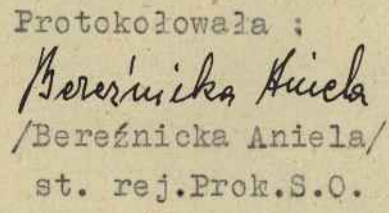 Protokołowała :
Bereźnicka Aniela
/Bereźnicka Aniela/
st. rej.Prok.S.O.